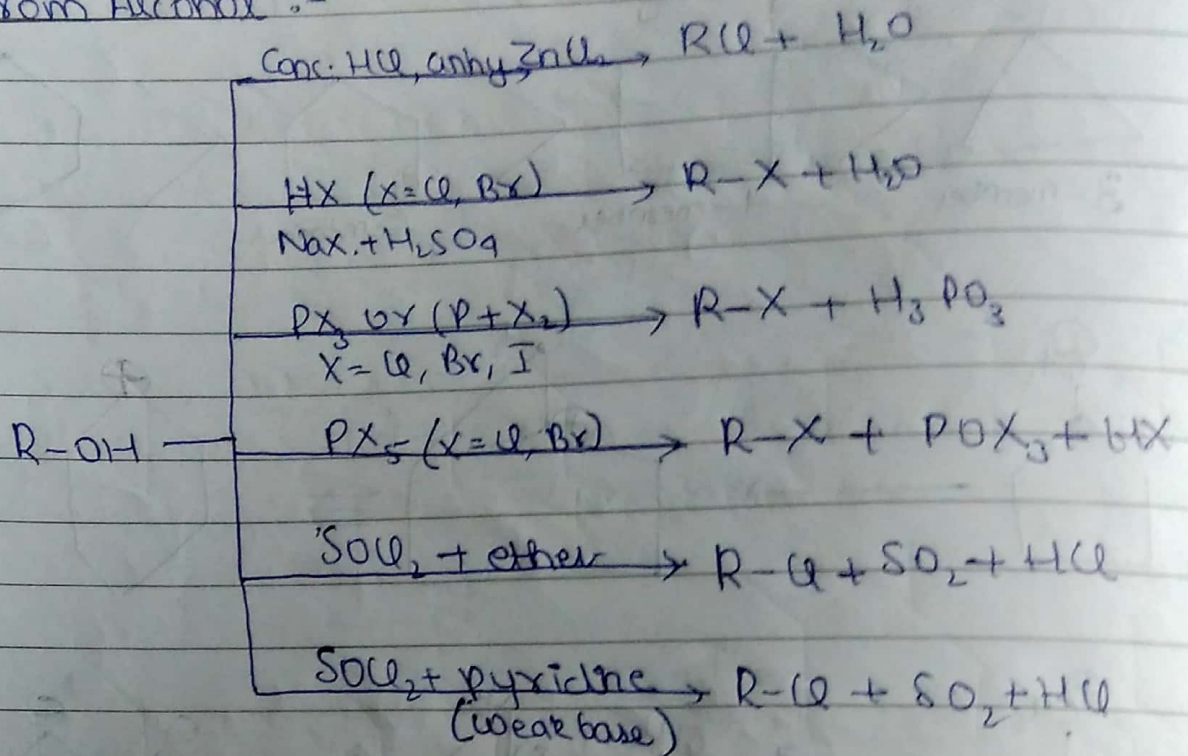 from Alcohol :-
Conc. HCl, anhy ZnCl₂ → RCl + H₂O
HX (X=Cl, Br) → R-X + H₂O
NaX + H₂SO₄
PX₃ or (P+X₂) → R-X + H₃PO₃
X = Cl, Br, I
R-OH
PX₅ (X=Cl, Br) → R-X + POX₃ + HX
SOCl₂ + ether → R-Cl + SO₂ + HCl
SOCl₂ + pyridine → R-Cl + SO₂ + HCl
(weak base)